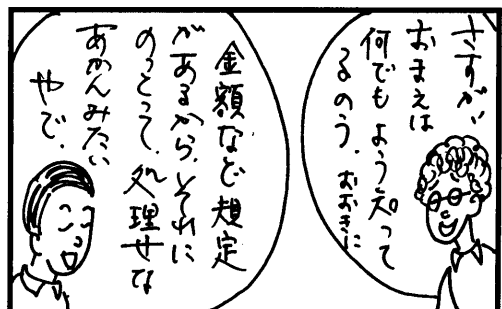 さすが、
おまえは
何でもよう知って
るのう、おおきに
金額など規定
があるから、それに
のっとって、処理せな
あかんみたい
やで、